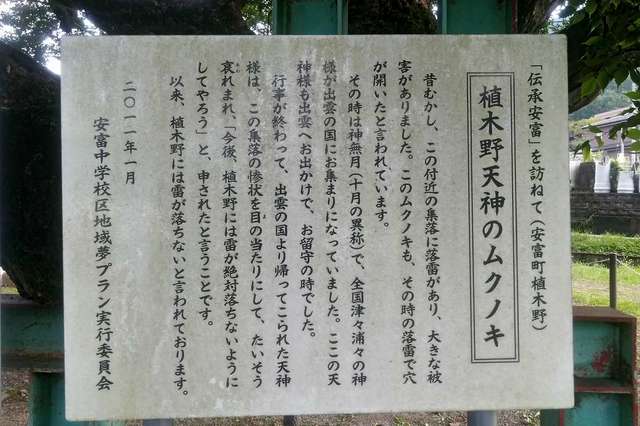 「伝承安富」を訪ねて（安富町植木野）
植木野天神のムクノキ
昔むかし、この付近の集落に落雷があり、大きな被
害がありました。このムクノキも、その時の落雷で穴
が開いたと言われています。
その時は神無月（十月の異称）で、全国津々浦々の神
様が出雲の国にお集まりになっていました。ここの天
神様も出雲へお出かけで、お留守の時でした。
行事が終わって、出雲の国より帰ってこられた天神
様は、この集落の惨状を目の当たりにして、たいそう
哀れまれ、「今後、植木野には雷が絶対落ちないように
してやろう」と、申されたと言うことです。
以来、植木野には雷が落ちないと言われております。
二〇一一年一月
安富中学校区地域夢プラン実行委員会